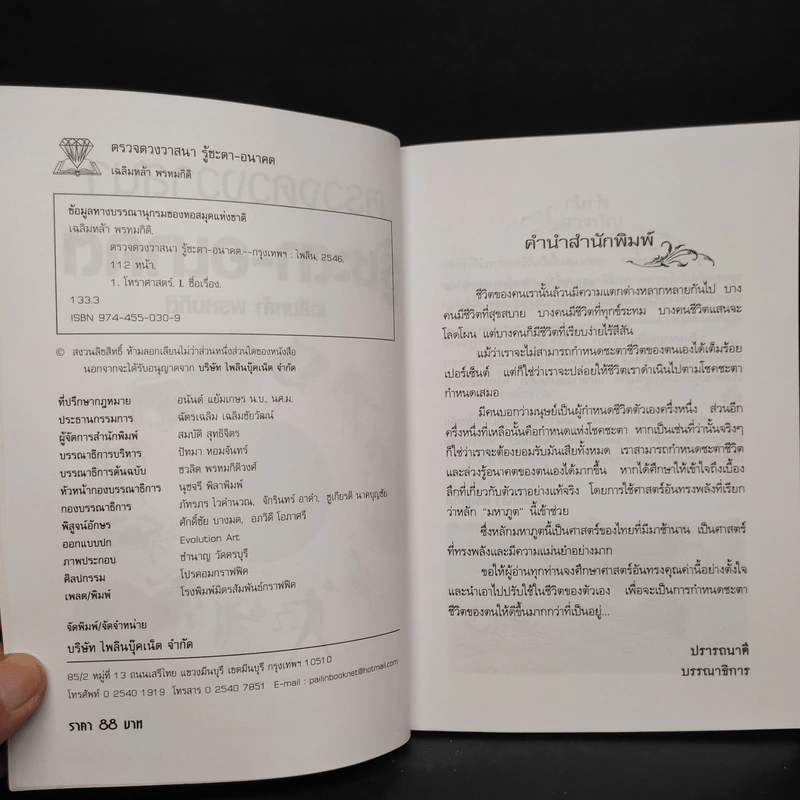 ตรวจดวงวาสนา รู้ชะตา-อนาคต
เฉลิมหล้า พรหมกิติ
ข้อมูลทางบรรณานุกรมของหอสมุดแห่งชาติ
เฉลิมหล้า พรหมกิติ.
ตรวจดวงวาสนา รู้ชะตา-อนาคต.--กรุงเทพฯ : ไพลิน, 2546.
112 หน้า.
1. โหราศาสตร์. I. ชื่อเรื่อง.
133.3
ISBN 974-455-030-9
© สงวนลิขสิทธิ์ ห้ามลอกเลียนไม่ว่าส่วนหนึ่งส่วนใดของหนังสือ
นอกจากจะได้รับอนุญาตจาก บริษัท ไพลินบุ๊คเน็ต จำกัด
ที่ปรึกษากฎหมาย อนันต์ แย้มเกษร น.บ., นศ.ม.
ประธานกรรมการ ฉัตรเฉลิม เฉลิมชัยวัฒน์
ผู้จัดการสำนักพิมพ์ สมบัติ สุทธิจิตร
บรรณาธิการบริหาร ปัทมา หอมจันทร์
บรรณาธิการต้นฉบับ ชวลิต พรหมกิติวงศ์
หัวหน้ากองบรรณาธิการ นุชจรี พิลาพิมพ์
กองบรรณาธิการ ภัทรภร ไวคำนวณ, จักรินทร์ อาดำ, ชูเกียรติ นาคบุญชัย
พิสูจน์อักษร ศักดิ์ชัย บางมด, อภวิดี โอภาศรี
ออกแบบปก Evolution Art
ภาพประกอบ ชำนาญ วัดครบุรี
ศิลปกรรม โปรคอมกราฟฟิค
เพลต/พิมพ์ โรงพิมพ์มิตรสัมพันธ์กราฟฟิค
จัดพิมพ์/จัดจำหน่าย
บริษัท ไพลินบุ๊คเน็ต จำกัด
85/2 หมู่ที่ 13 ถนนเสรีไทย แขวงมีนบุรี เขตมีนบุรี กรุงเทพฯ 10510
โทรศัพท์ 0 2540 1919 โทรสาร 0 2540 7851 E-mail : pailinbooknet@hotmail.com
ราคา 88 บาท
คำนำสำนักพิมพ์
ชีวิตของคนเรานั้นล้วนมีความแตกต่างหลากหลายกันไป บาง
คนมีชีวิตที่สุขสบาย บางคนมีชีวิตที่ทุกข์ระทม บางคนชีวิตแสนจะ
โลดโผน แต่บางคนก็มีชีวิตที่เรียบง่ายไร้สีสัน
แม้ว่าเราจะไม่สามารถกำหนดชะตาชีวิตของตนเองได้เต็มร้อย
เปอร์เซ็นต์ แต่ก็ใช่ว่าเราจะปล่อยให้ชีวิตเราดำเนินไปตามโชคชะตา
กำหนดเสมอ
มีคนบอกว่ามนุษย์เป็นผู้กำหนดชีวิตตัวเองครึ่งหนึ่ง ส่วนอีก
ครึ่งหนึ่งที่เหลือนั้นคือกำหนดแห่งโชคชะตา หากเป็นเช่นที่ว่านั้นจริงๆ
ก็ใช่ว่าเราจะต้องยอมรับมันเสียทั้งหมด เราสามารถกำหนดชะตาชีวิต
และล่วงรู้อนาคตของตนเองได้มากขึ้น หากได้ศึกษาให้เข้าใจถึงเบื้อง
ลึกที่เกี่ยวกับตัวเราอย่างแท้จริง โดยการใช้ศาสตร์อันทรงพลังที่เรียก
ว่าหลัก "มหาภูต" นี้เข้าช่วย
ซึ่งหลักมหาภูตนี้เป็นศาสตร์ของไทยที่มีมาช้านาน เป็นศาสตร์
ที่ทรงพลังและมีความแม่นยำอย่างมาก
ขอให้ผู้อ่านทุกท่านจงศึกษาศาสตร์อันทรงคุณค่านี้อย่างตั้งใจ
และนำเอาไปปรับใช้ในชีวิตของตัวเอง เพื่อจะเป็นการกำหนดชะตา
ชีวิตของตนให้ดีขึ้นมากกว่าที่เป็นอยู่...
ปรารถนาดี
บรรณาธิการ